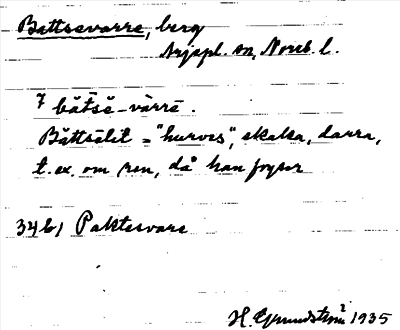 Battsevarre, berg
Arjepl. sn, Norrb. l.
7 bättsĕ-vàrrē.
Bättsēlit = "hurves", skaka, darra,
t. ex. om ren, då han fryser
34 b1 Paktesvare
H. Grundström 1935